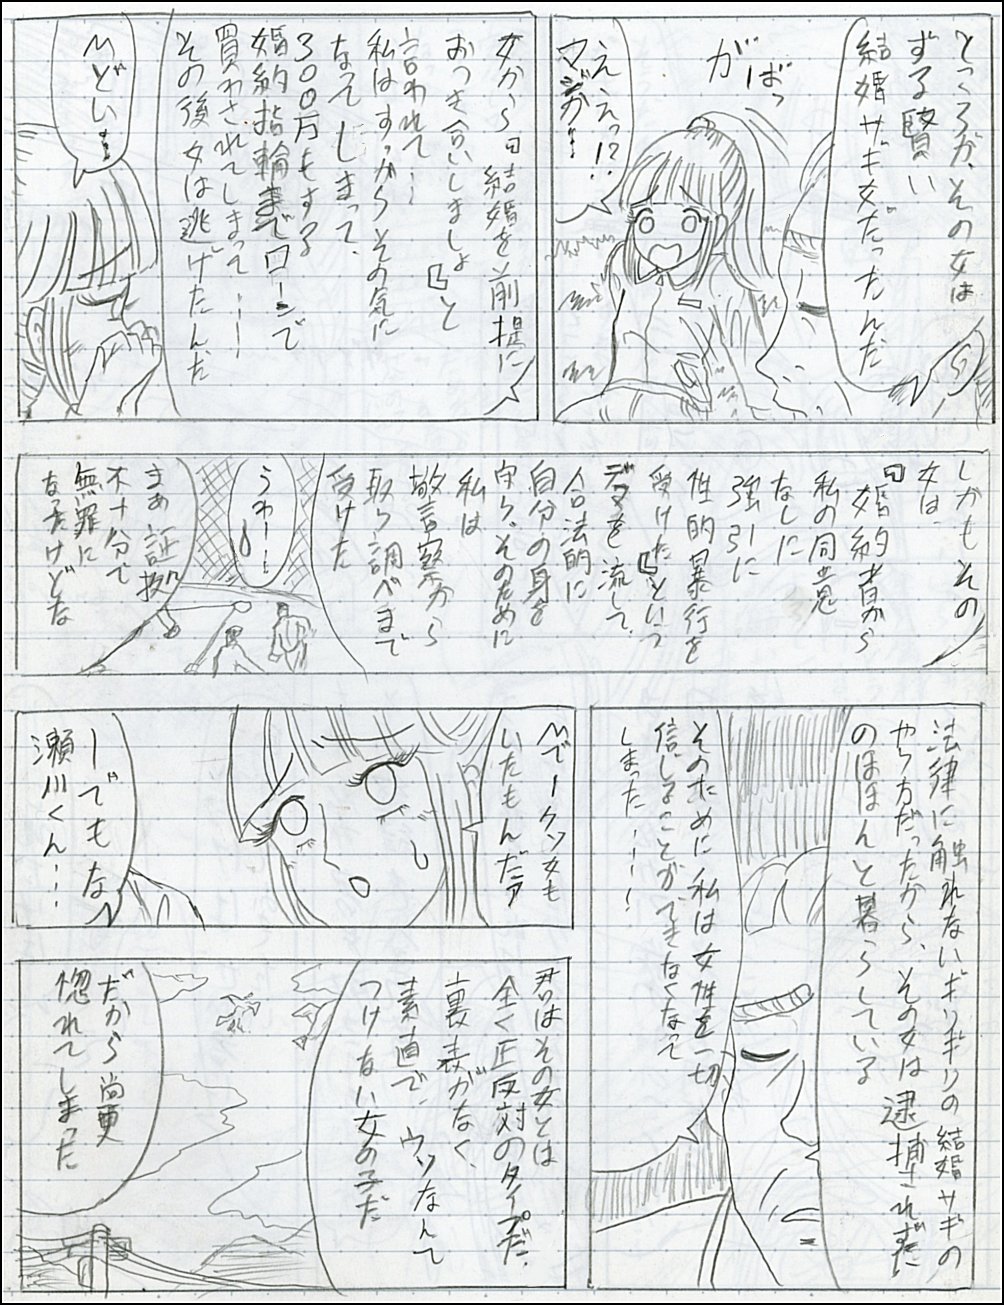 ところが、その女は
ずる賢い
結婚サギ女だったんだ
がばっ
ええっ!?
マジか…
女から『結婚を前提に
おつき合いしましょ』と
言われて…
私はすっかりその気に
なってしまって、
300万もする
婚約指輪までローンで
買わされてしまって…
その後女は逃げたんだ
ひどい…
しかもその
女は、
『婚約者から
私の同意
なしに
強引に
性的暴行を
受けた』という
デマを流して、
合法的に
自分の身を
守り、そのために
私は
警察から
取り調べまで
受けた
うわー…
まぁ証拠
不十分で
無罪に
なったけどな
法律に触れないギリギリの結婚サギの
やり方だったから、その女は逮捕されずに
のほほんと暮らしている
そのために私は女性を一切
信じることができなくなって
しまった…!
ひでークソ女も
いたもんだな
ーでもな
瀬川くん…
君はその女とは
全く正反対のタイプだ、
裏表がなく、
素直で、ウソなんて
つけない女の子だ
だから尚更
惚れてしまった